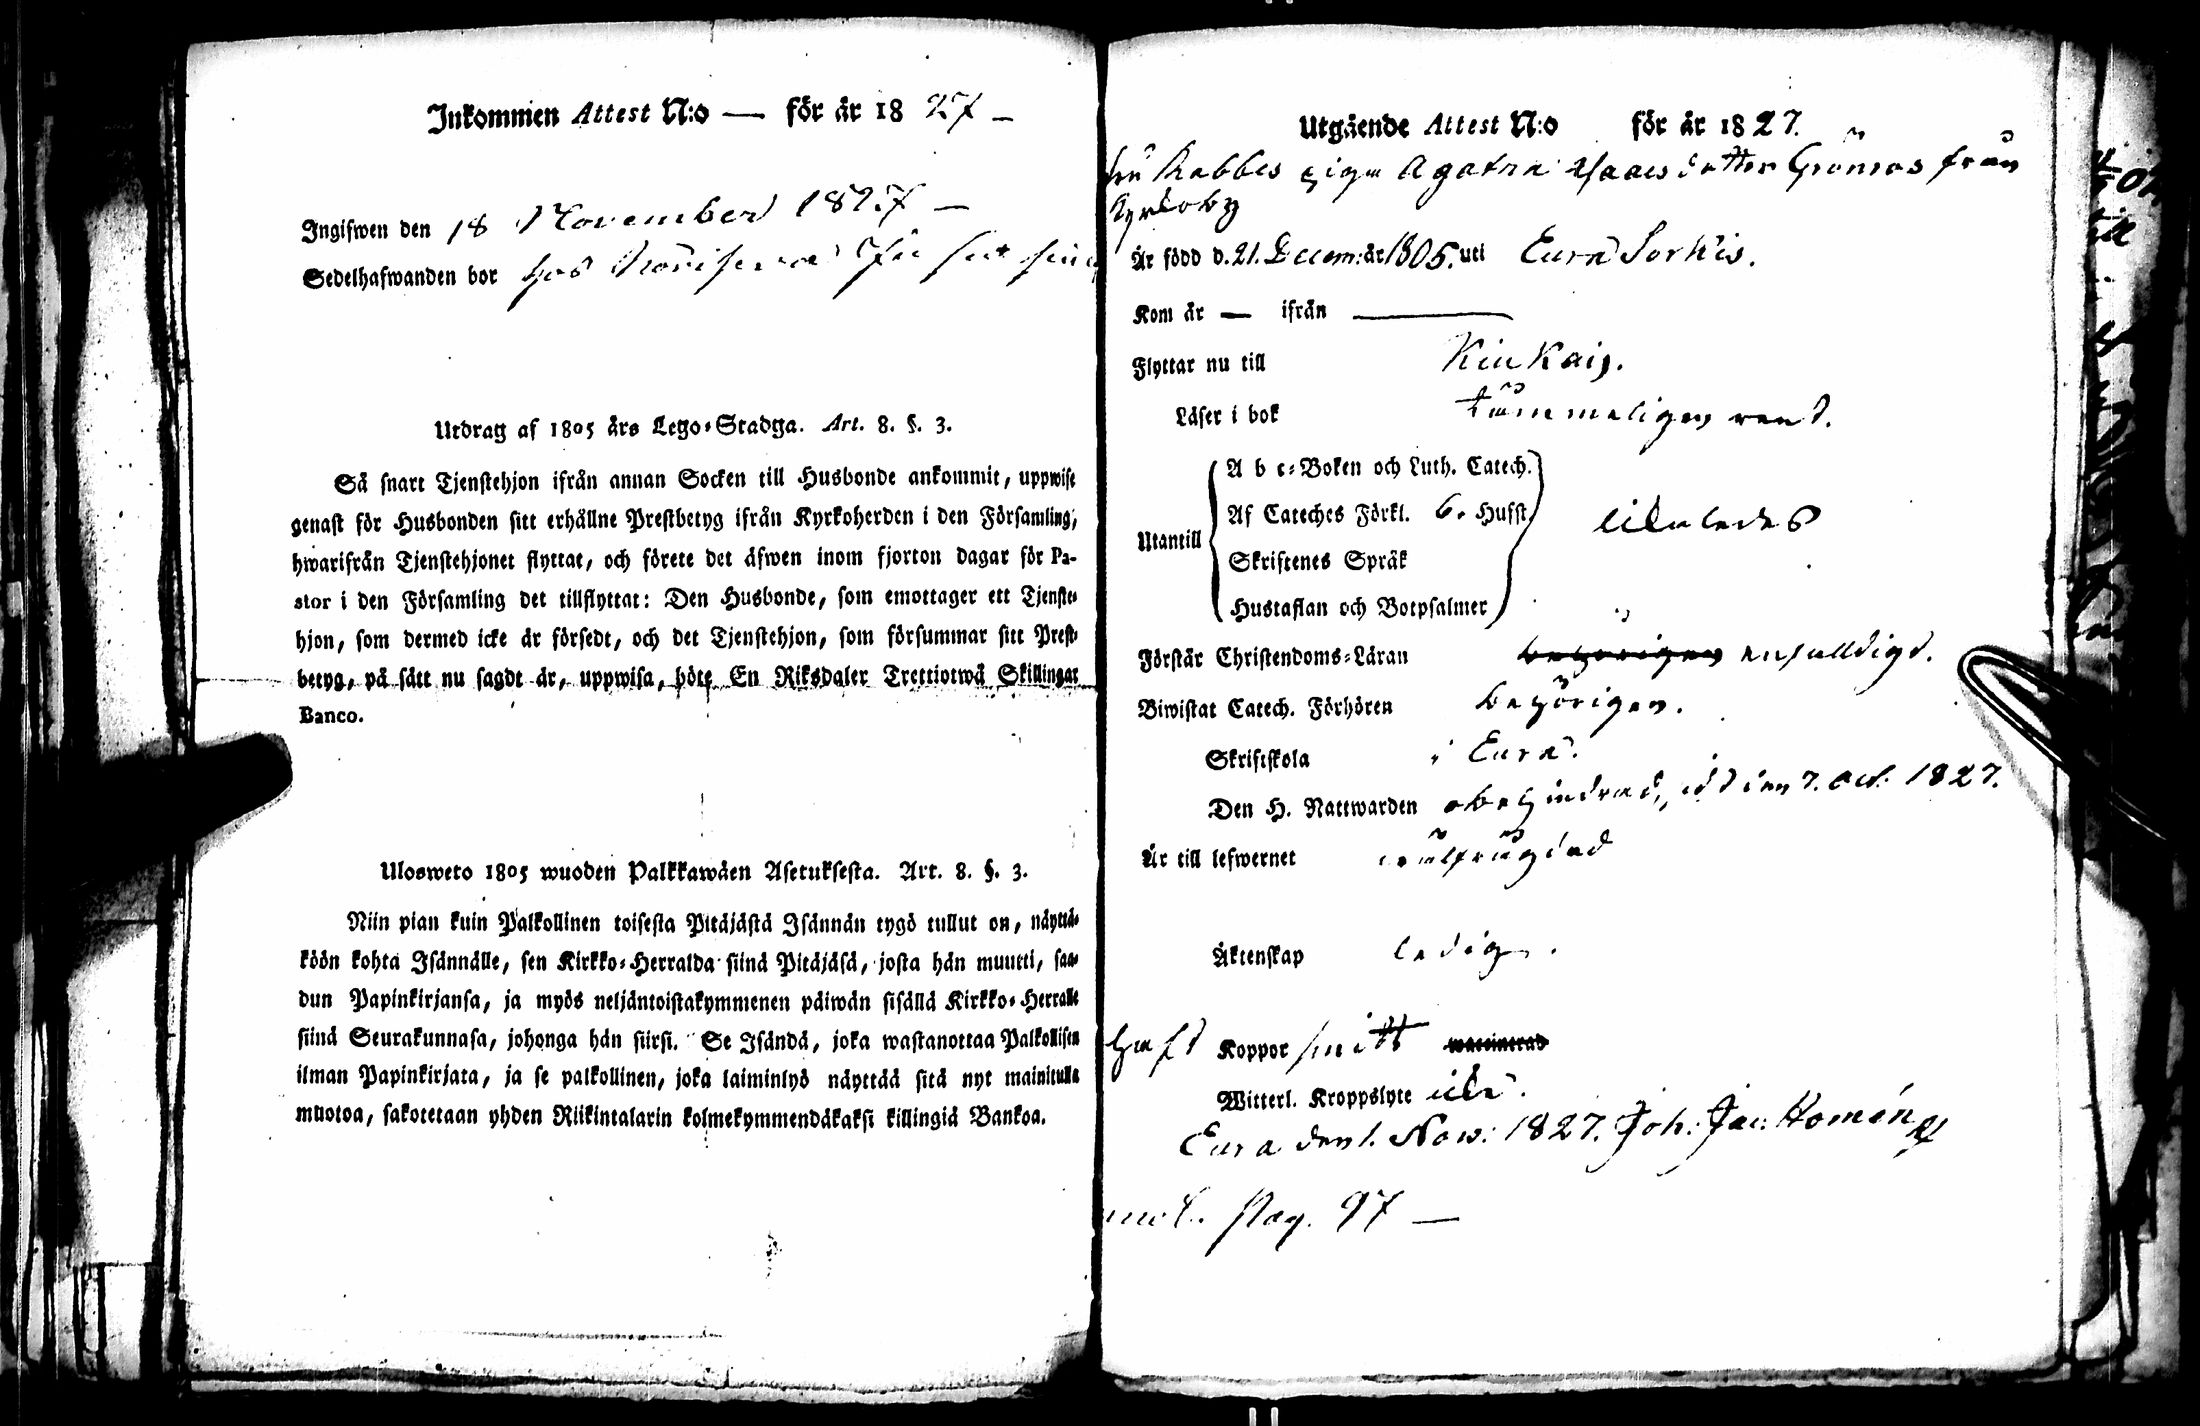 Inkommen Attest N:o — för år 1827 —
Ingifwen den 18 November 1827 —
Sedelhafwanden bor hos
Utdrag af 1805 års Lego-Stadga. Art. 8. §. 3.
Så snart Tjenstehjon ifrån annan Socken till Husbonde ankommit, uppwise
genast för Husbonden sitt erhållne Prestbetyg ifrån Kyrkoherden i den Församling,
hwarifrån Tjenstehjonet flyttat, och förete det äfwen inom fjorton dagar för Pa-
stor i den Församling det tillflyttat: Den Husbonde, som emottager ett Tjenste-
hjon, som dermed icke är försedt, och det Tjenstehjon, som försummar sitt Prest-
betyg, på sätt nu sagdt är, uppwisa, böte En Riksdaler Trettiotwå Skillingar
Banco.
Ulosweto 1805 wuoden Palkkawäen Asetuksesta. Art. 8. §. 3.
Niin pian kuin Palkollinen toisesta Pitäjästä Isännän tygö tullut on, näyttä-
köön kohta Isännälle, sen Kirkko-Herralda siinä Pitäjäsä, josta hän muutti, saa-
dun Papinkirjansa, ja myös neljäntoistakymmenen päiwän sisällä Kirkko-Herralle
siinä Seurakunnasa, johonga hän siirsi. Se Isändä, joka wastanottaa Palkollisen
ilman Papinkirjata, ja se palkollinen, joka laiminlyö näyttää sitä nyt mainitulla
muotoa, sakotetaan yhden Riikintalarin kolmekymmendäkaksi killingiä Bankoa.
Utgående Attest N:o för år 1827.
Rabbes piga Agatha Isaacsdotter Grönroos från
Kyrkoby
Är född d. 21. Decem: år 1805. uti Eura Sorkis.
Kom år — ifrån —
Flyttar nu till Kiukais.
Läser i bok tämmeligen rent.
Utantill
A b c-Boken och Luth. Catech.
Af Cateches Förkl. 6. Hufst.
Skriftenes Språk
Hustaflan och Botpsalmer
likaledes
Förstår Christendoms-Läran behörigen enfaldigt.
Biwistat Catech. Förhören behörigen.
Skriftskola i Eura.
Den H. Nattwarden obehindrad, den 7. Oct. 1827.
Är till lefwernet wälfrägdad
Äktenskap ledig.
haft Koppor smitt waccinerad
Witterl. Kroppslyte icke.
Eura den 1. Now: 1827. Joh: Jac: Homén
Pag. 97 —